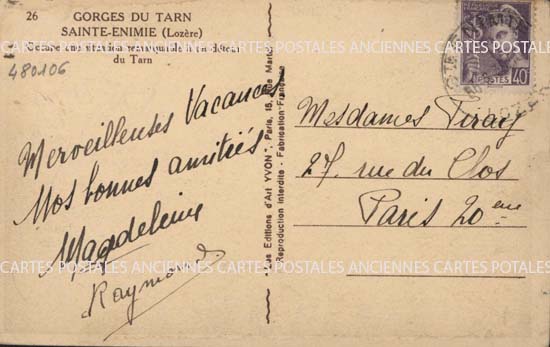 26
GORGES DU TARN
SAINTE-ENIMIE (Lozère)
Occupe une situation remarquable au détour
du Tarn
480106
Merveilleuses Vacances
Nos bonnes amitiés
Magdeleine
Raymond
Les Editions d'Art YVON", Paris, 15, Rue Martel
Reproduction interdite - Fabrication Française
POSTES
40
Mesdames
27, rue du Clos
Paris 20eme
CARTES POSTALES ANCIENNES CARTES POSTALES ANCIENNES CARTES POSTALES
CARTES POSTALES ANCIENNES CARTES POSTALES ANCIENNES CARTES POSTALES